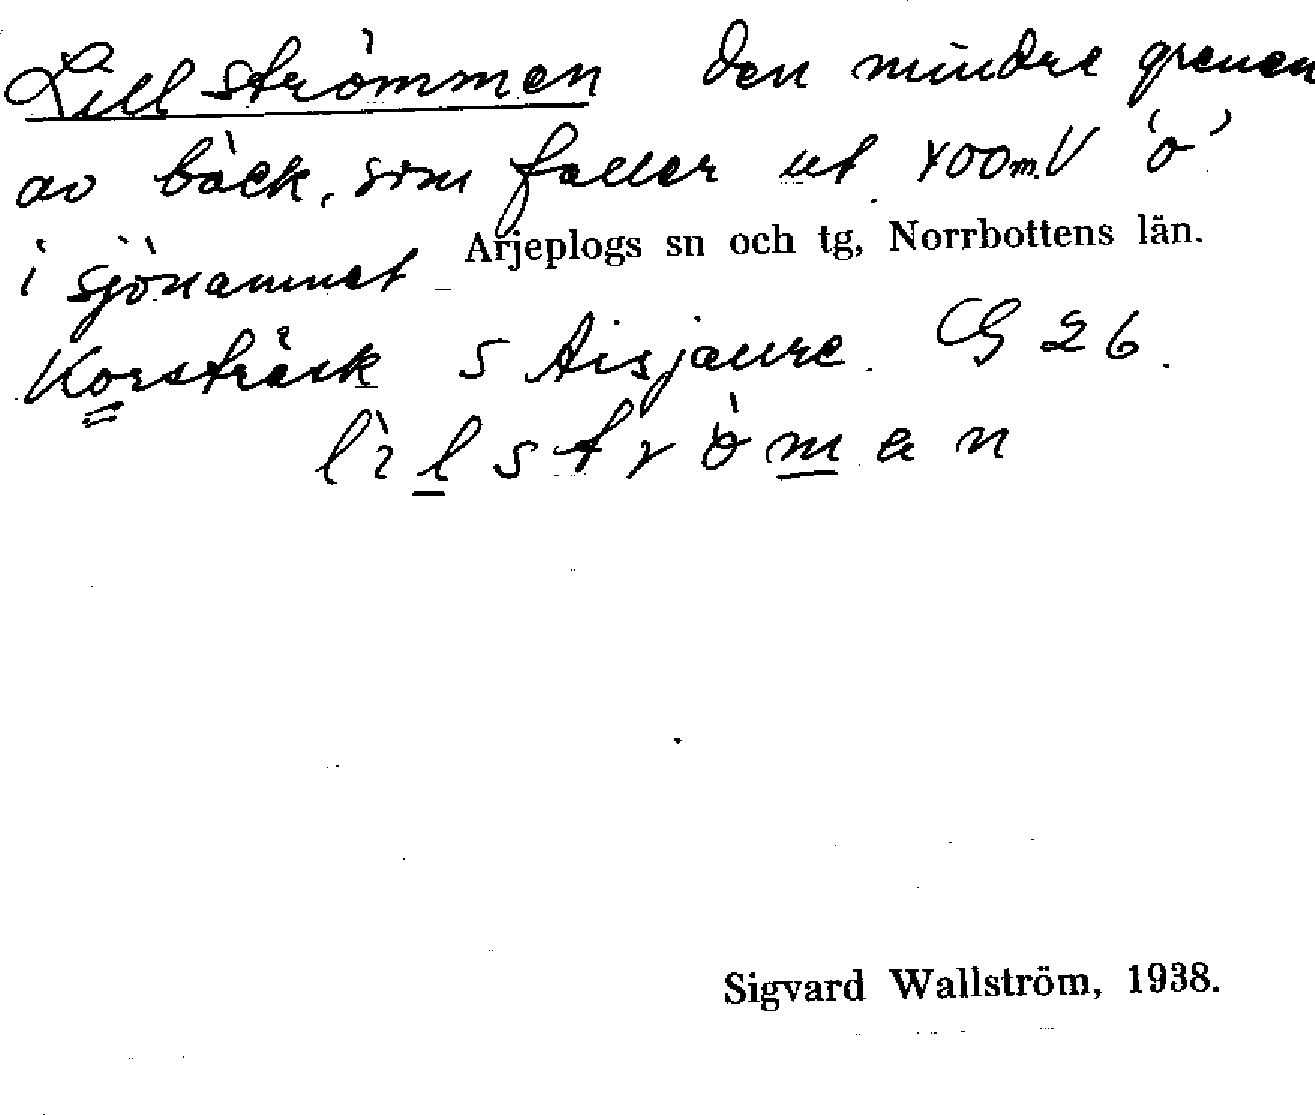 Lillströmmen den mindre grenen
av bäck, som faller ut 400m V 'o'
i sjönamnet Arjeplogs sn och tg, Norrbottens län.
Korsträsk S Aisjaure. CG 26.
lìlströman
Sigvard Wallström, 1938.